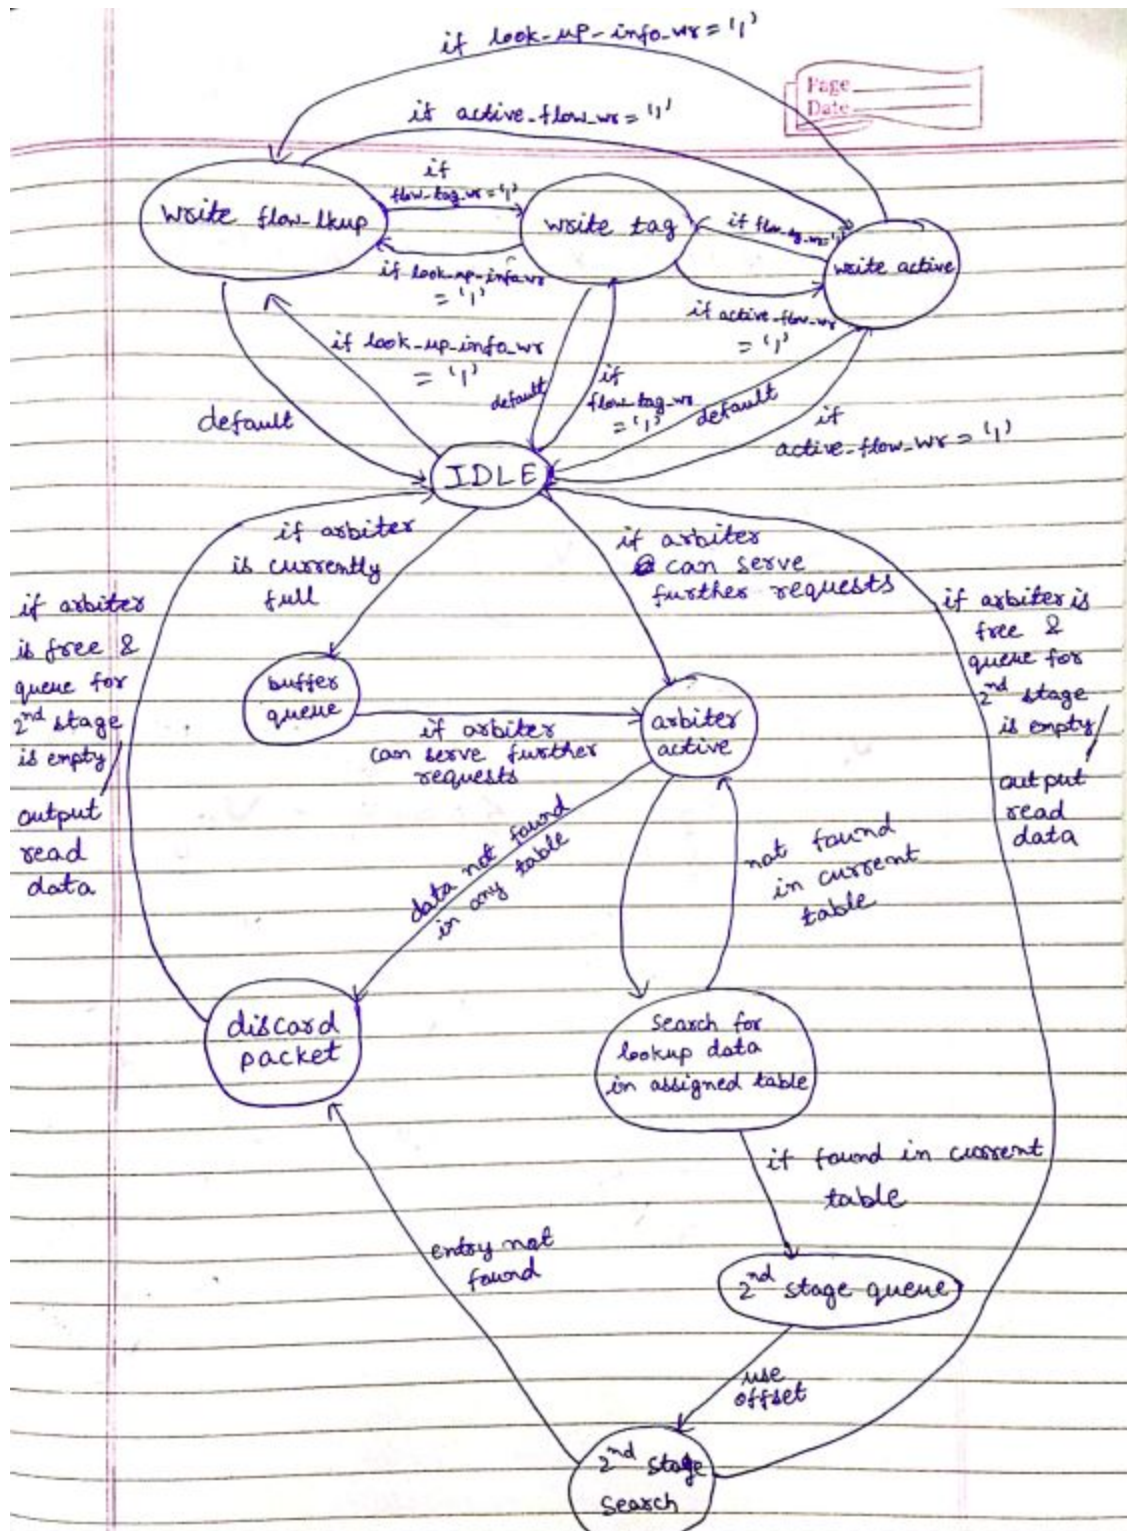 if look-up-info-wr = '1'
Page
Date
if active-flow-wr = '1'
if
flow-tag-wr = '1'
write flow-lkup
write tag
if flow-tag-wr = '1'
write active
if look-up-info-wr
= '1'
if active-flow-wr
= '1'
if look-up-info-wr
= '1'
default
default
if
flow-tag-wr
= '1'
default
if
active-flow-wr = '1'
IDLE
if arbiter
is currently
full
if arbiter
can serve
further requests
if arbiter
is free &
queue for
2nd stage
is empty/
output
read
data
if arbiter is
free &
queue for
2nd stage
is empty/
output
read
data
buffer
queue
if arbiter
can serve further
requests
arbiter
active
data not found
in any table
not found
in current
table
discard
packet
Search for
lookup data
in assigned table
if found in current
table
entry not
found
2nd stage queue
use
offset
2nd stage
Search